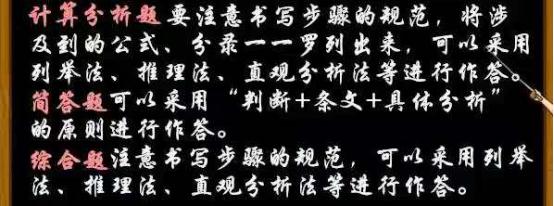 计算分析题要注意书写步骤的规范，将涉
及到的公式、分录一一罗列出来，可以采用
列举法、推理法、直观分析法等进行作答。
简答题可以采用“判断+条文+具体分析”
的原则进行作答。
综合题注意书写步骤的规范，可以采用列举
法、推理法、直观分析法等进行作答。